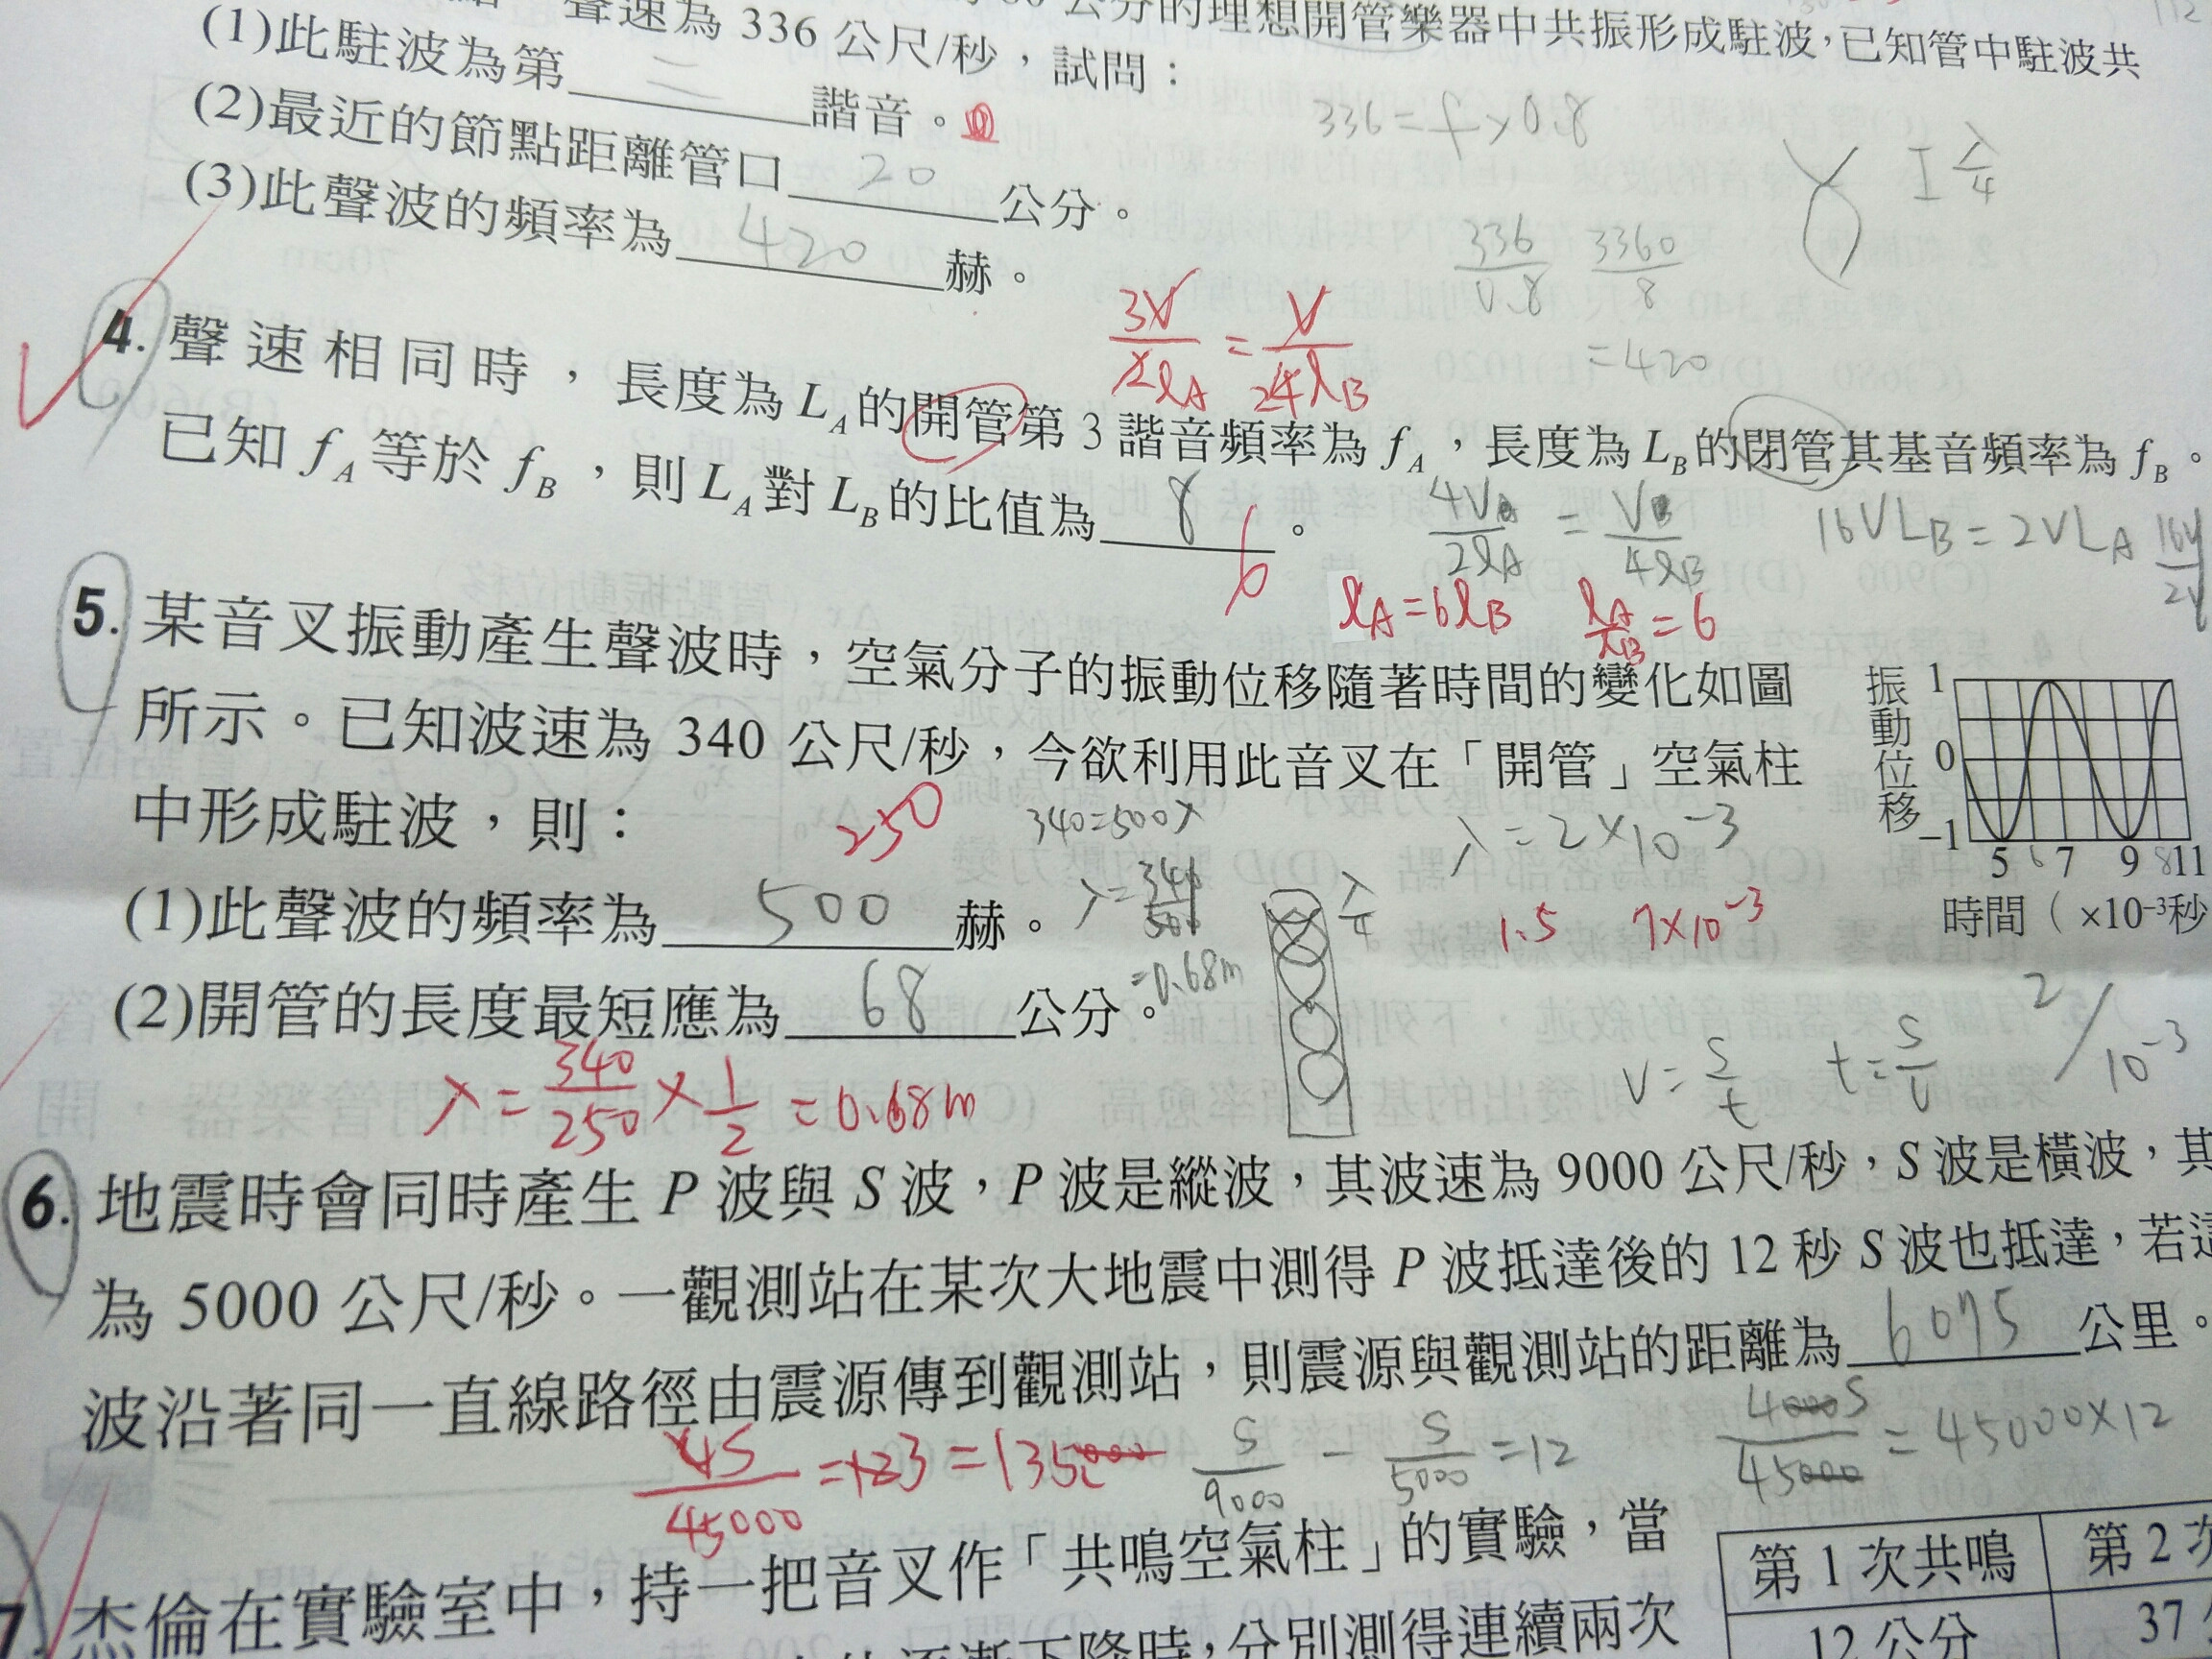 聲速為 336 公尺/秒，試問：
公分的理想開管樂器中共振形成駐波，已知管中駐波共
(1)此駐波為第 二 諧音。
336=f×0.8
(2)最近的節點距離管口 20 公分。
λ/4
(3)此聲波的頻率為 420 赫。
336/0.8 3360/8
=420
3V/2ℓA = V/4ℓB
4. 聲速相同時，長度為 LA 的開管第 3 諧音頻率為 fA，長度為 LB 的閉管其基音頻率為 fB。
已知 fA 等於 fB，則 LA 對 LB 的比值為 8 。
6
4V/2ℓA = V/4ℓB
16VLB=2VLA
ℓA=6ℓB ℓA/ℓB=6
5. 某音叉振動產生聲波時，空氣分子的振動位移隨著時間的變化如圖
所示。已知波速為 340 公尺/秒，今欲利用此音叉在「開管」空氣柱
中形成駐波，則：
250
340=500λ
λ=2×10⁻³
振動位移
1
0
-1
5 6 7 9 8 11
時間（×10⁻³秒
(1)此聲波的頻率為 500 赫。
λ=340/500
=0.68m
λ/4
1.5 7×10⁻³
(2)開管的長度最短應為 68 公分。
λ=340/250×1/2=0.68m
v=s/t t=s/v
2/10⁻³
6. 地震時會同時產生 P 波與 S 波，P 波是縱波，其波速為 9000 公尺/秒，S 波是橫波，其
為 5000 公尺/秒。一觀測站在某次大地震中測得 P 波抵達後的 12 秒 S 波也抵達，若這
波沿著同一直線路徑由震源傳到觀測站，則震源與觀測站的距離為 6075 公里。
4S/45000=123=135000
S/9000-S/5000=12
4000S/45000=45000×12
7. 杰倫在實驗室中，持一把音叉作「共鳴空氣柱」的實驗，當
逐漸下降時，分別測得連續兩次
第 1 次共鳴 第 2 次
12 公分 37